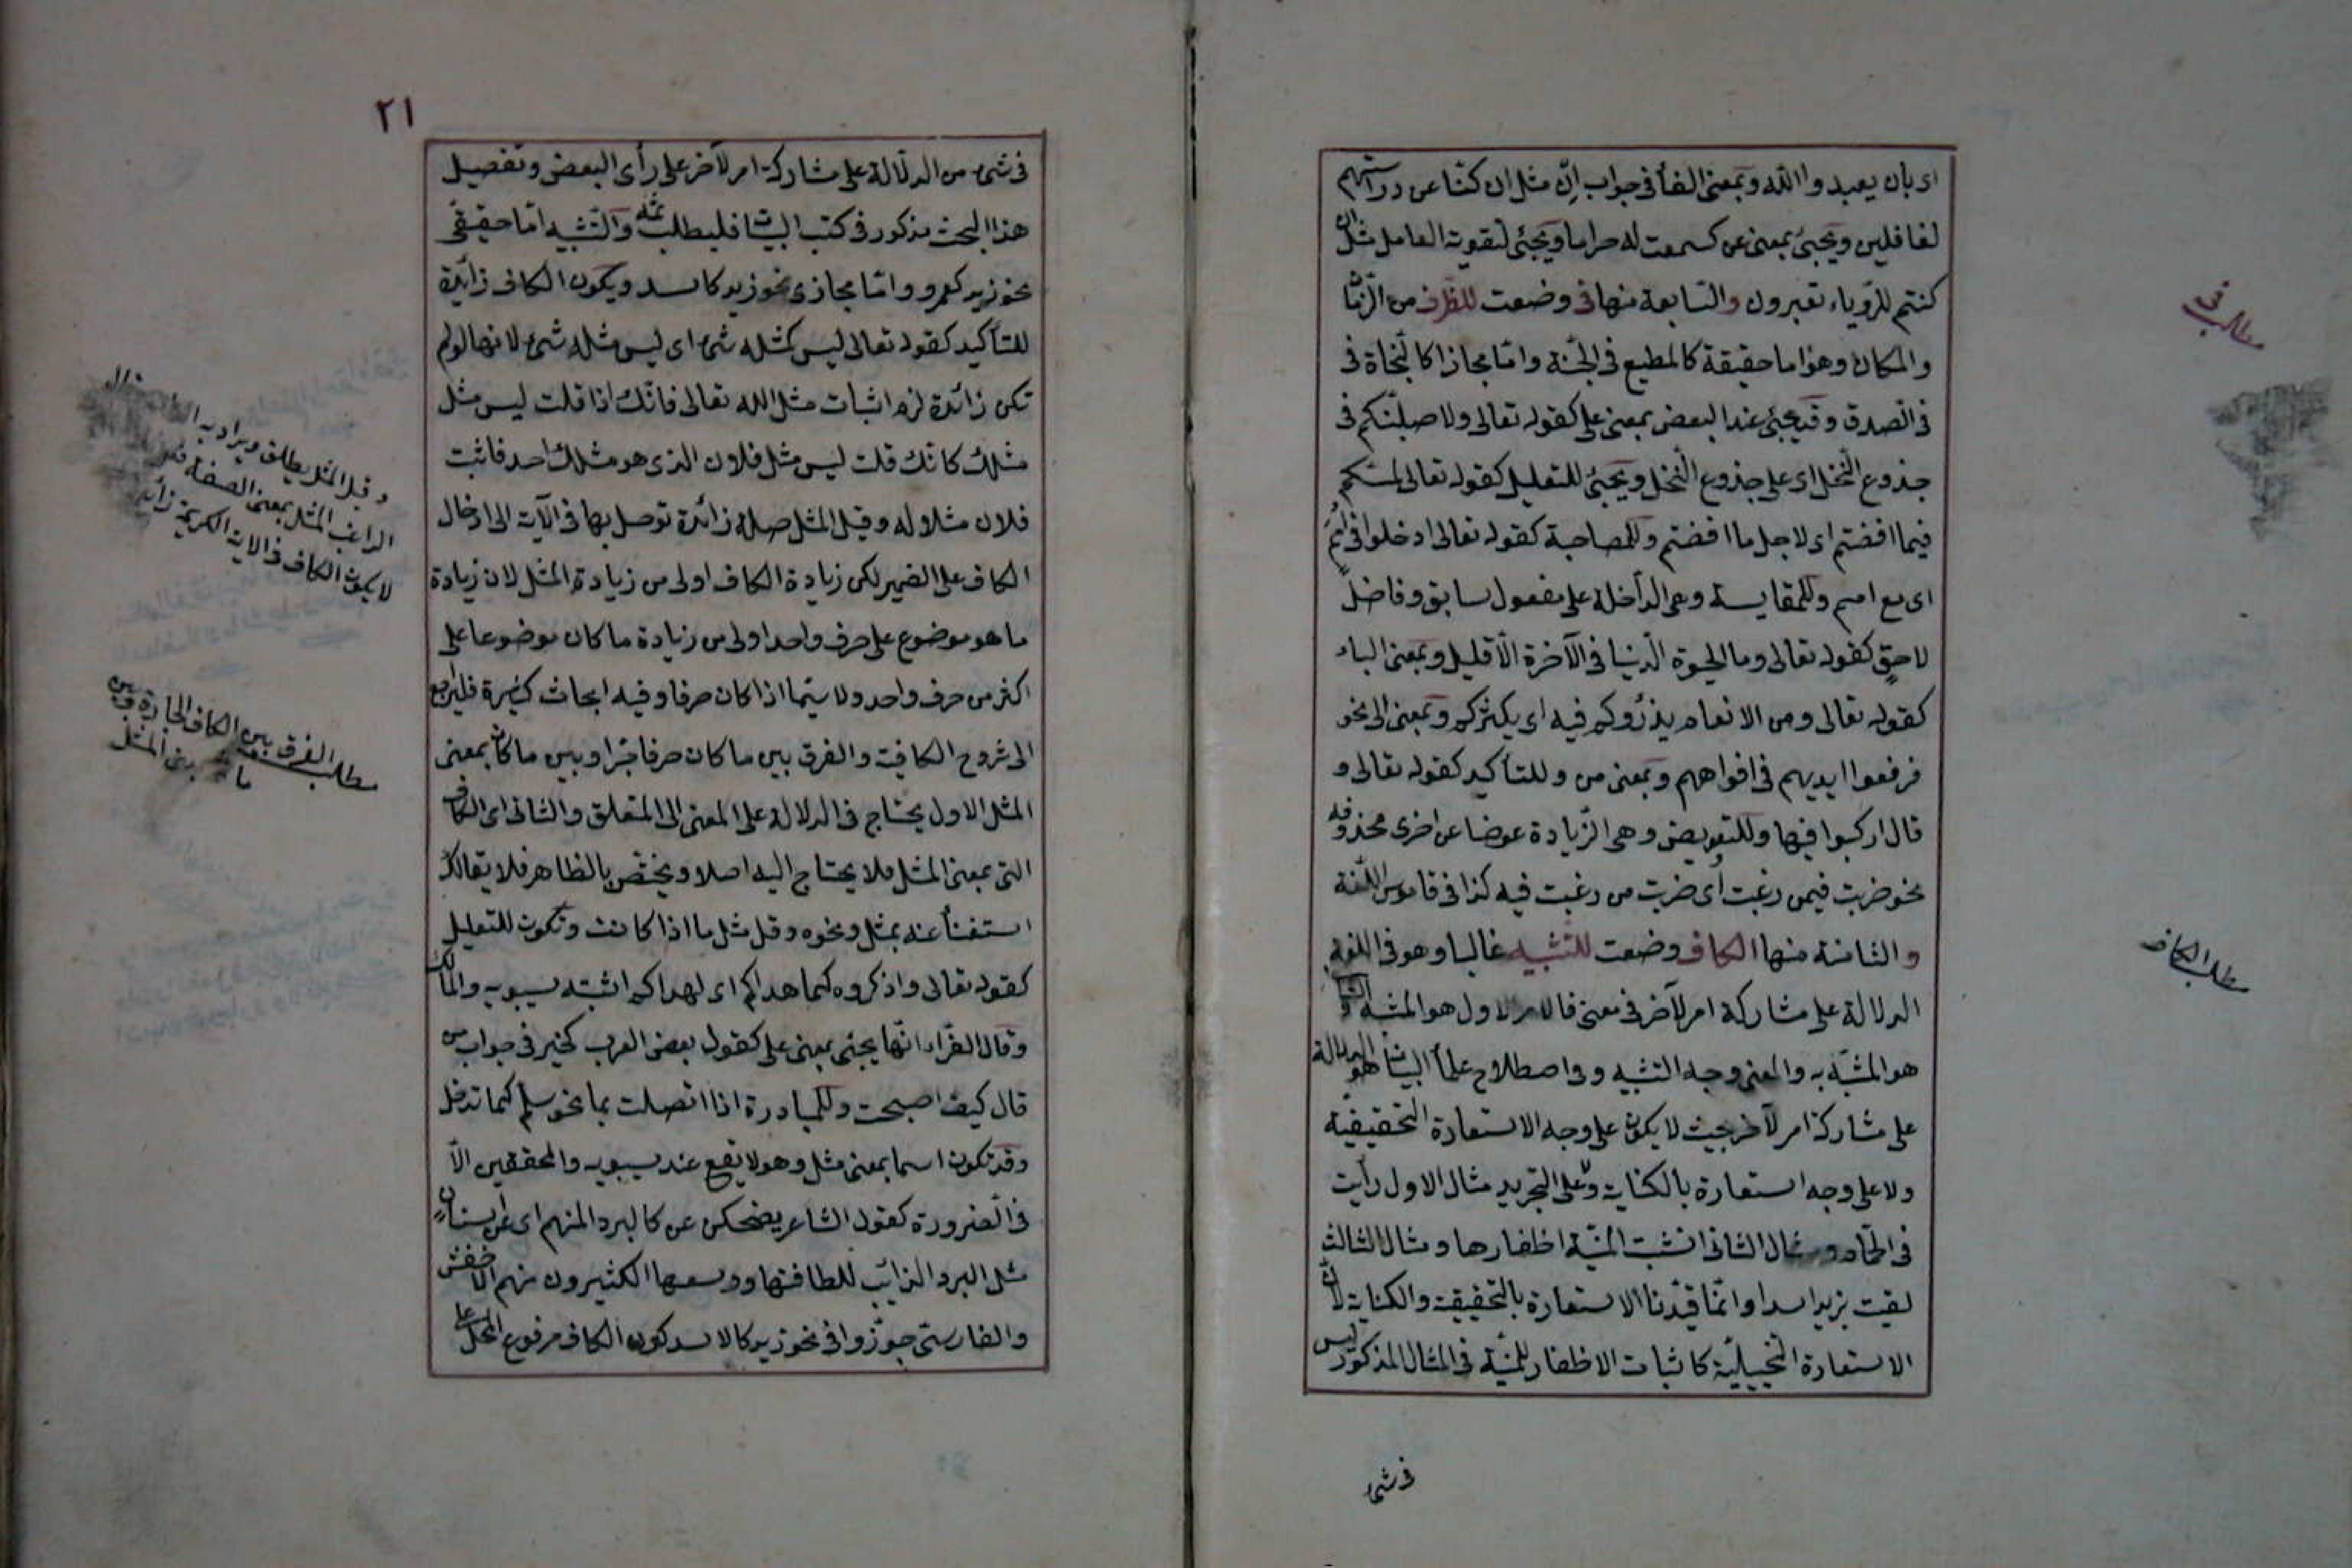 اى بان يعبدوا الله وبمعنى الفأ فى جواب اِنْ مثل ان كنّا عن دراستهم
لغافلين ويجئ بمعنى عن كسمعت له صراما ويجئ لتقوية العامل مثل ان
كنتم للرّوياء تعبرون والسّابعة منها فى وضعت للظرف من الزّما
والمكان وهو اما حقيقة كالمطيع فى الجنّة وامّا مجازا كالنّجاة فى
فى الصدق وقد يجئ عند البعض بمعنى على كقوله تعالى ولاصلبنّكم فى
جذوع النّخل اى على جذوع النّخل ويجئ للتعليل كقوله تعالى لمسّكم
فيما افضتم اى لاجل ما افضتم وللمصاحبة كقوله تعالى ادخلوا فى امم
اى مع امم وللمقايسة وهى الدّاخلة على مفعول سابق وفاضل
لاحق كقوله تعالى وما الحيوة الدّنيا فى الآخرة الّا قليل وبمعنى الباء
كقوله تعالى ومن الانعام يذرؤكم فيه اى يكثركم وبمعنى الى نحو
فرفعوا ايديهم فى افواههم وبمعنى من وللتأكيد كقوله تعالى و
قال اركبوا فيها وللتعويض وهى الزّيادة عوضا عن اخرى محذوفة
نحو ضربت فيمن رغبت أى ضربت من رغبت فيه كذا فى قاموس اللّغة
والثامنة منها الكاف وضعت للتشبيه غالبا وهو فى اللغة
الدلالة على مشاركة امر لآخر فى معنى فالامر الاول هو المشبه
هو المشبّه به والمعنى وجه التشبيه وفى اصطلاح علمأ البيان هو الدلالة
على مشاركة امر لآخر بحيث لا يكون على وجه الاستعارة التحقيقية
ولا على وجه استعارة بالكناية وعلى التجريد مثال الاول رأيت
فى الحمّام ومثال الثانى انشبت المنيّة اظفارها ومثال الثالث
لقيت بزيد اسدا وانّما قيّدنا الاستعارة بالتحقيقية والكناية لانّ
الاستعارة التّخييليّة كاثبات الاظفار للمنيّة فى المثال المذكور ليس
فى شئ
مطلب فى
مطلب الكاف
٢١
فى شئ من الدلالة على مشاركة امر لآخر على رأى البعض وتفصيل
هذا البحث مذكور فى كتب البيان فليطلب ثمه والتشبيه امّا حقيقى
نحو زيد كعمرو وامّا مجازى نحو زيد كاسد ويكون الكاف زائدة
للتأكيد كقوله تعالى ليس كمثله شئ اى ليس مثله شئ لانها لو لم
تكن زائدة لزم اثبات مثل الله تعالى فانّك اذا قلت ليس مثل
مثلك كانّك قلت ليس مثل فلان الذى هو مثلك احد فاثبت
فلان مثلا له وقيل المثل صلة زائدة توصل بها فى الآية الى ادخال
الكاف على الضمير لكن زيادة الكاف اولى من زيادة المثل لان زيادة
ما هو موضوع على حرف واحد اولى من زيادة ما كان موضوعا على
اكثر من حرف واحد ولا سيّما اذا كان حرفا وفيه ابحاث كثيرة فليراجع
الى شروح الكافية والفرق بين ما كان حرفا جرّا وبين ما كان بمعنى
المثل الاول يحتاج فى الدلالة على المعنى الى المتعلق والثانى اى الكاف
التى بمعنى المثل فلا يحتاج اليه اصلا ويختصّ بالظاهر فلا يقال كه
استغنأ عنه بمثل ونحوه وقل مثل ما اذا كانت وتكون للتعليل
كقوله تعالى واذكروه كما هداكم اى لهداكم اثبته سيبويه والمالك
وقال الفرّاء انّها يجئ بمعنى على كقول بعض العرب كخير فى جواب من
قال كيف اصبحت وللمبادرة اذا اتصلت بما نحو سلم كما تدخل
وقد تكون اسما بمعنى مثل وهو لا يقع عند سيبويه والمحققين الّا
فى الضرورة كقول الشاعر يضحكن عن كالبرد المنهم اى عن اسنان
مثل البرد الذائب للطافتها ووسعها الكثيرون منهم الاخفش
والفارسىّ جوّزوا فى نحو زيد كالاسد كون الكاف مرفوع المحل على
وقيل المثل يطلق ويراد به
الراغب المثل بمعنى الصفة
لا يكون الكاف فى الاية الكريمة زائدة
مطلب الفرق بين الكاف الجارة وبين
ما بمعنى المثل